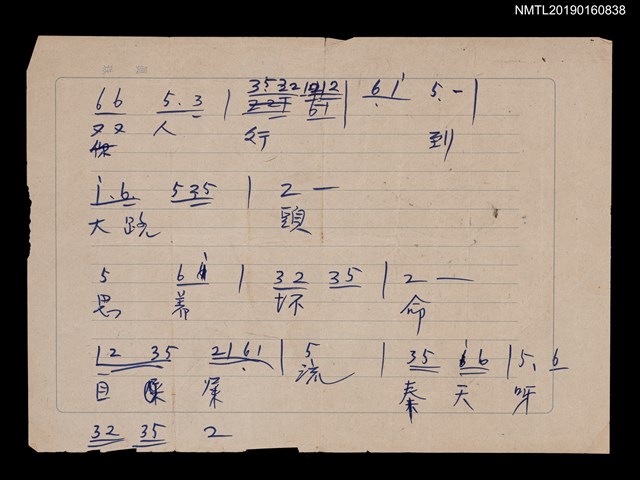 NMTL20190160838
66 5.3 | 3532 1212 | 61 5. — |
双双 人 行 到
1.6 535 | 2 —
大路 頭
5 61 | 32 35 | 2 —
思 着 坏 命
12 35 2161 | 5 | 35 16 | 5. 6
目 屎 流 秦 天 呀
32 35 2